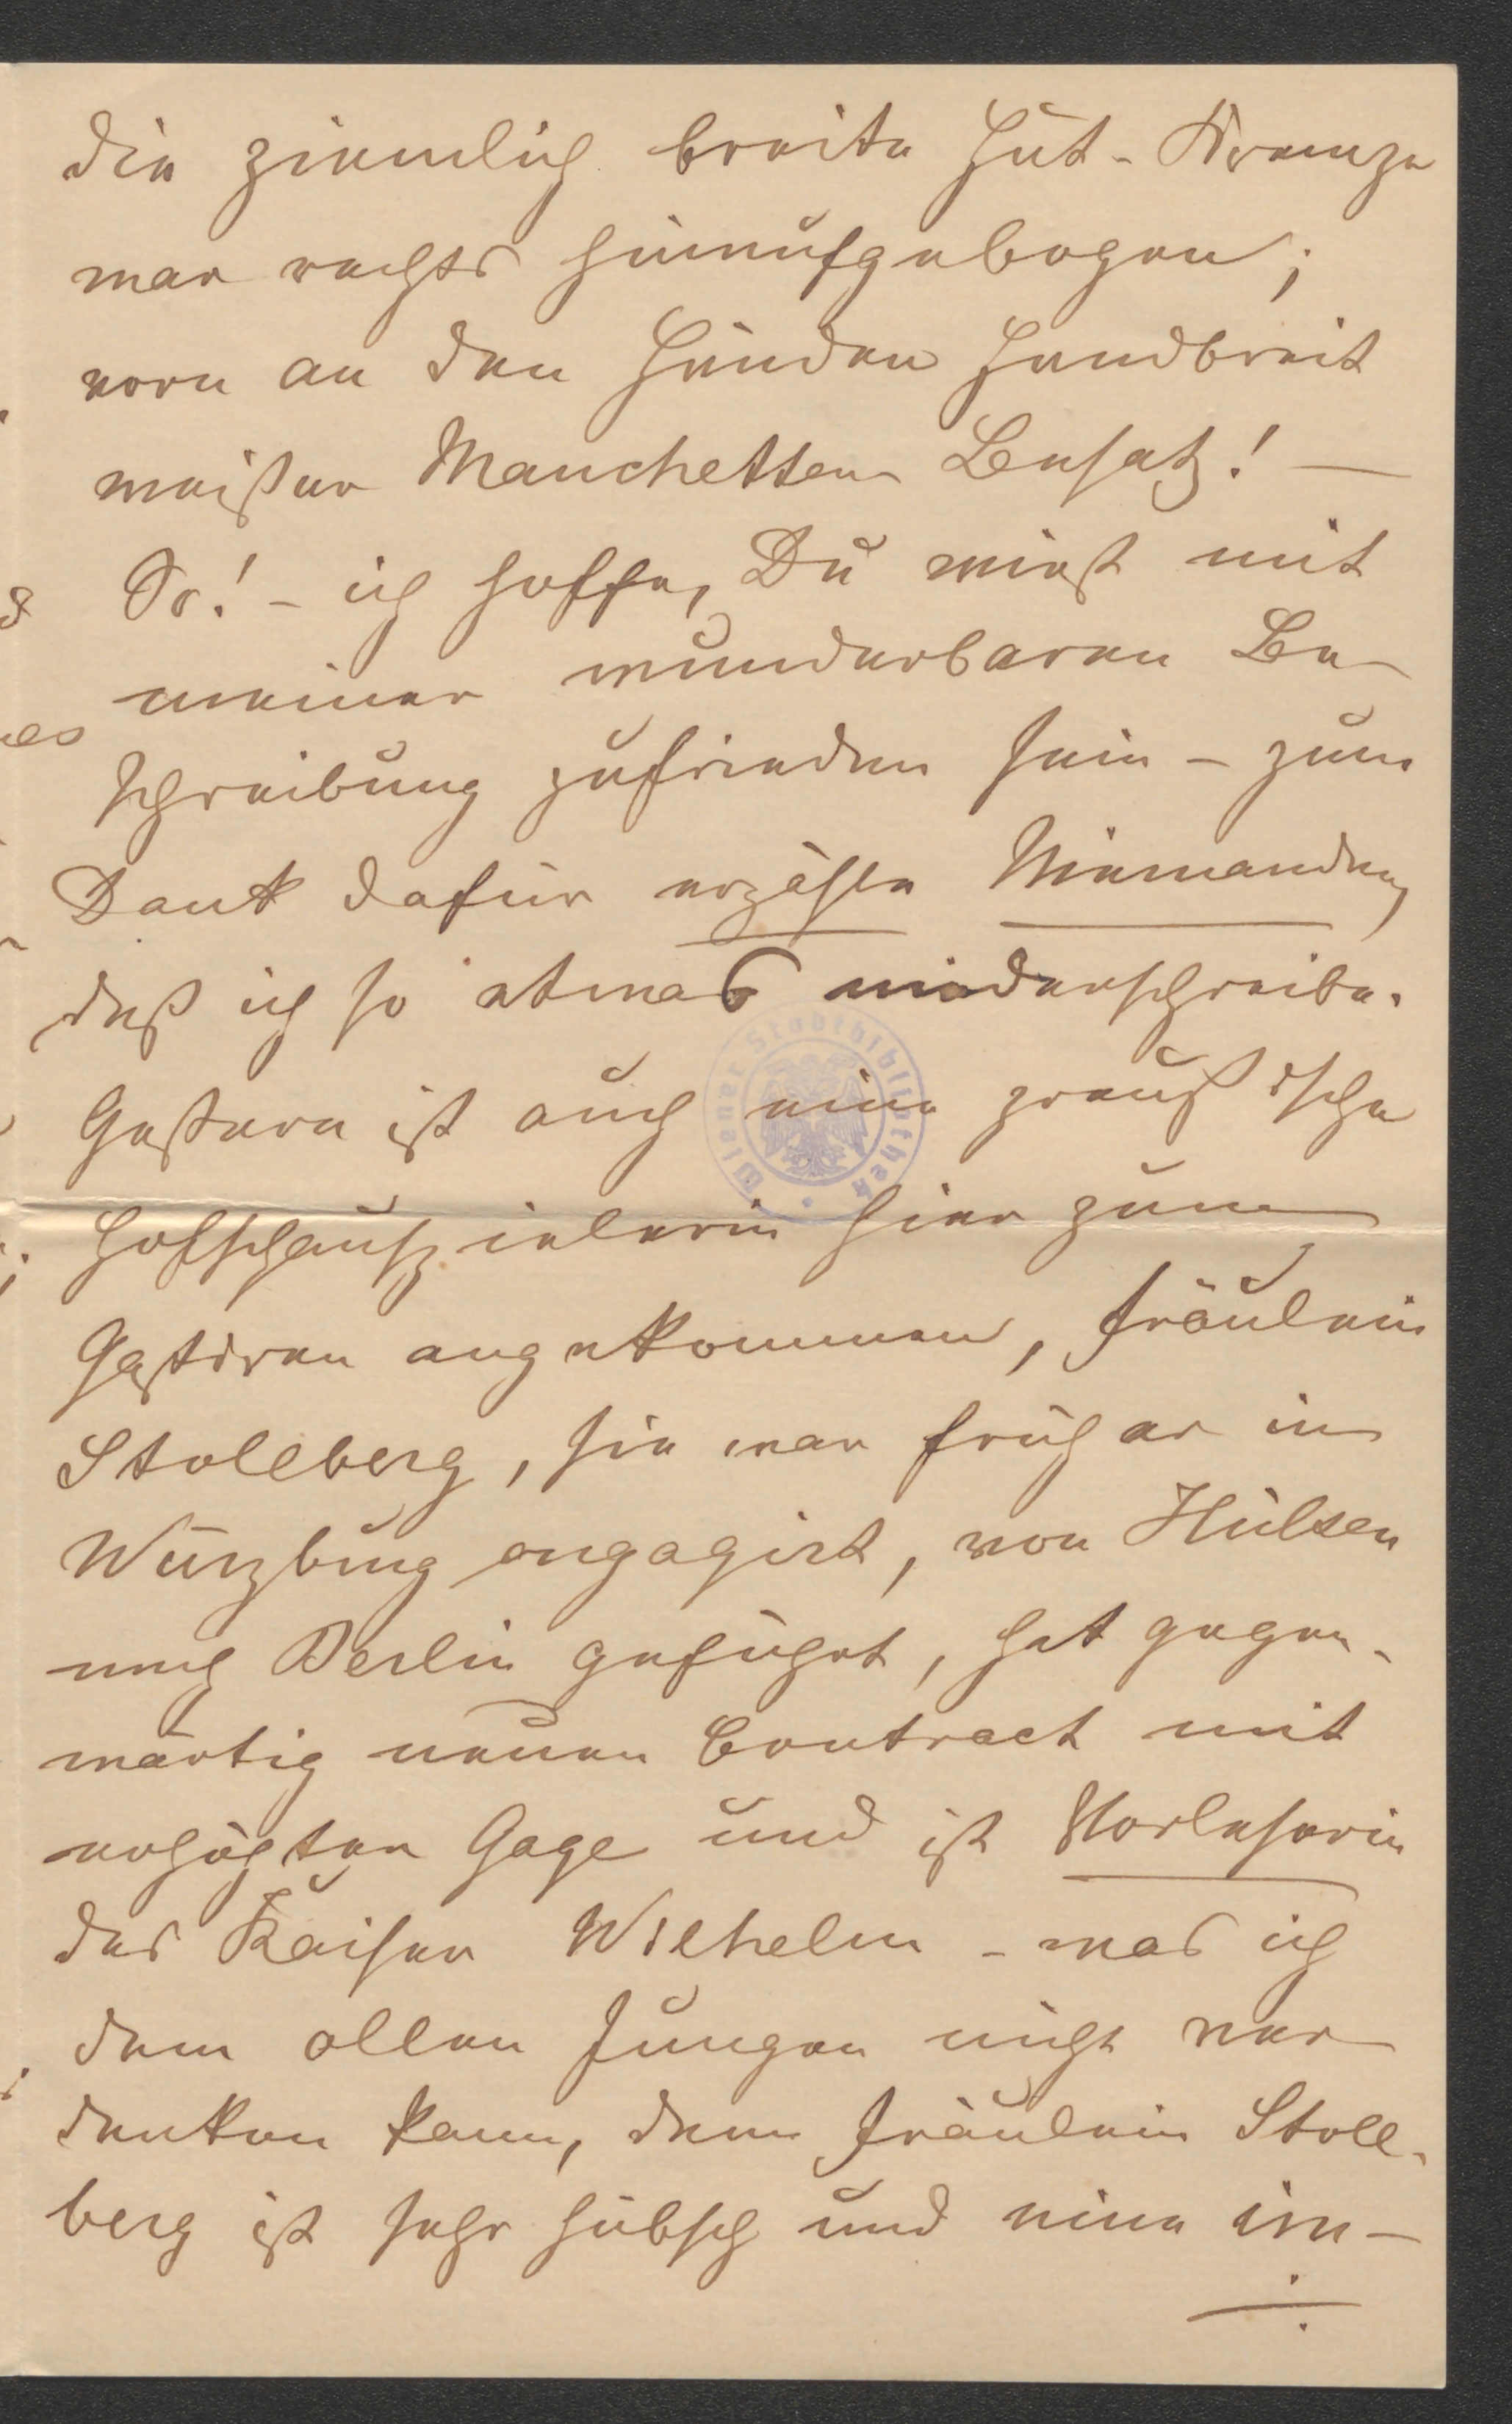 die ziemlich breite Hut-Krempe
war rechts hinaufgebogen;
vorn an den Händen handbreit
weißer Manchetten Besatz! —
So! – ich hoffe, Du wirst mit
meiner wunderbaren Be-
schreibung zufrieden sein – zum
Dank dafür erzähle Niemanden,
daß ich so etwas niederschreibe.
Gestern ist auch eine preußische
Hofschauspielerin hier zum
Gastiren angekommen, Fräulein
Stollberg, sie war früher in
Würzburg engagirt, von Hülsen
nach Berlin geführt, hat gegen-
wärtig neuen Contract mit
erhöhter Gage und ist Vorleserin
des Kaiser Wilhelm – was ich
dem ollen Jungen nicht ver
denken kann, denn Fräulein Stoll-
berg ist sehr hübsch und eine im-
Wiener Stadtbibliothek